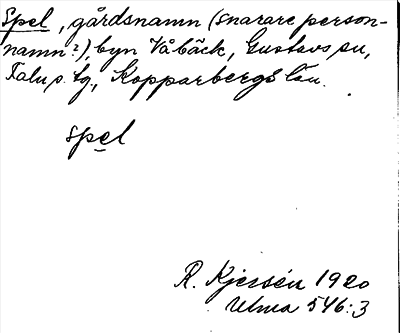 Spel, gårdsnamn (snarare person-
namn?), byn Våbäck, Gustavs sn,
Falu s. tg, Kopparbergs län.
spel
R. Kjessén 1920
Ulma 546:3